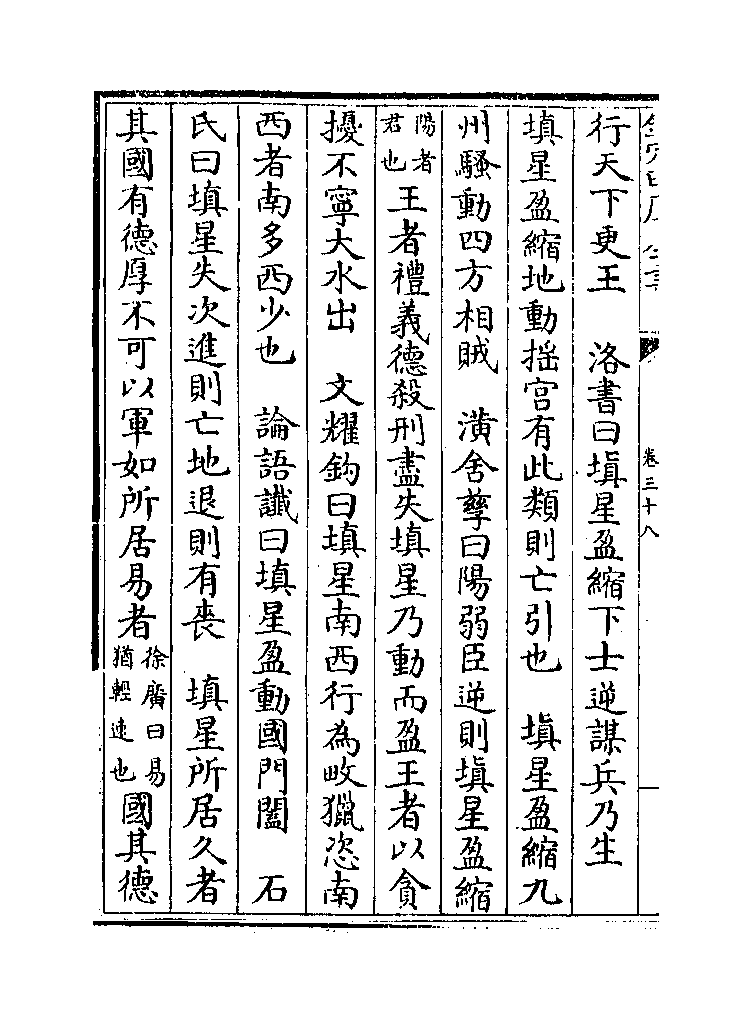 卷三十八
行天下更王　洛書曰填星盈縮下士逆謀兵乃生
填星盈縮地動揺宫有此類則亡引也　填星盈縮九
州騷動四方相賊　潢含孳曰陽弱臣逆則填星盈縮
陽者君也王者禮義德殺刑盡失填星乃動而盈王者以貪
擾不寧大水出　文耀鈎曰填星南西行為畋獵恣南
西者南多西少也　論語讖曰填星盈動國門闔　石
氏曰填星失次進則亡地退則有喪　填星所居久者
其國有德厚不可以軍如所居易者徐廣曰易猶輕速也國其德